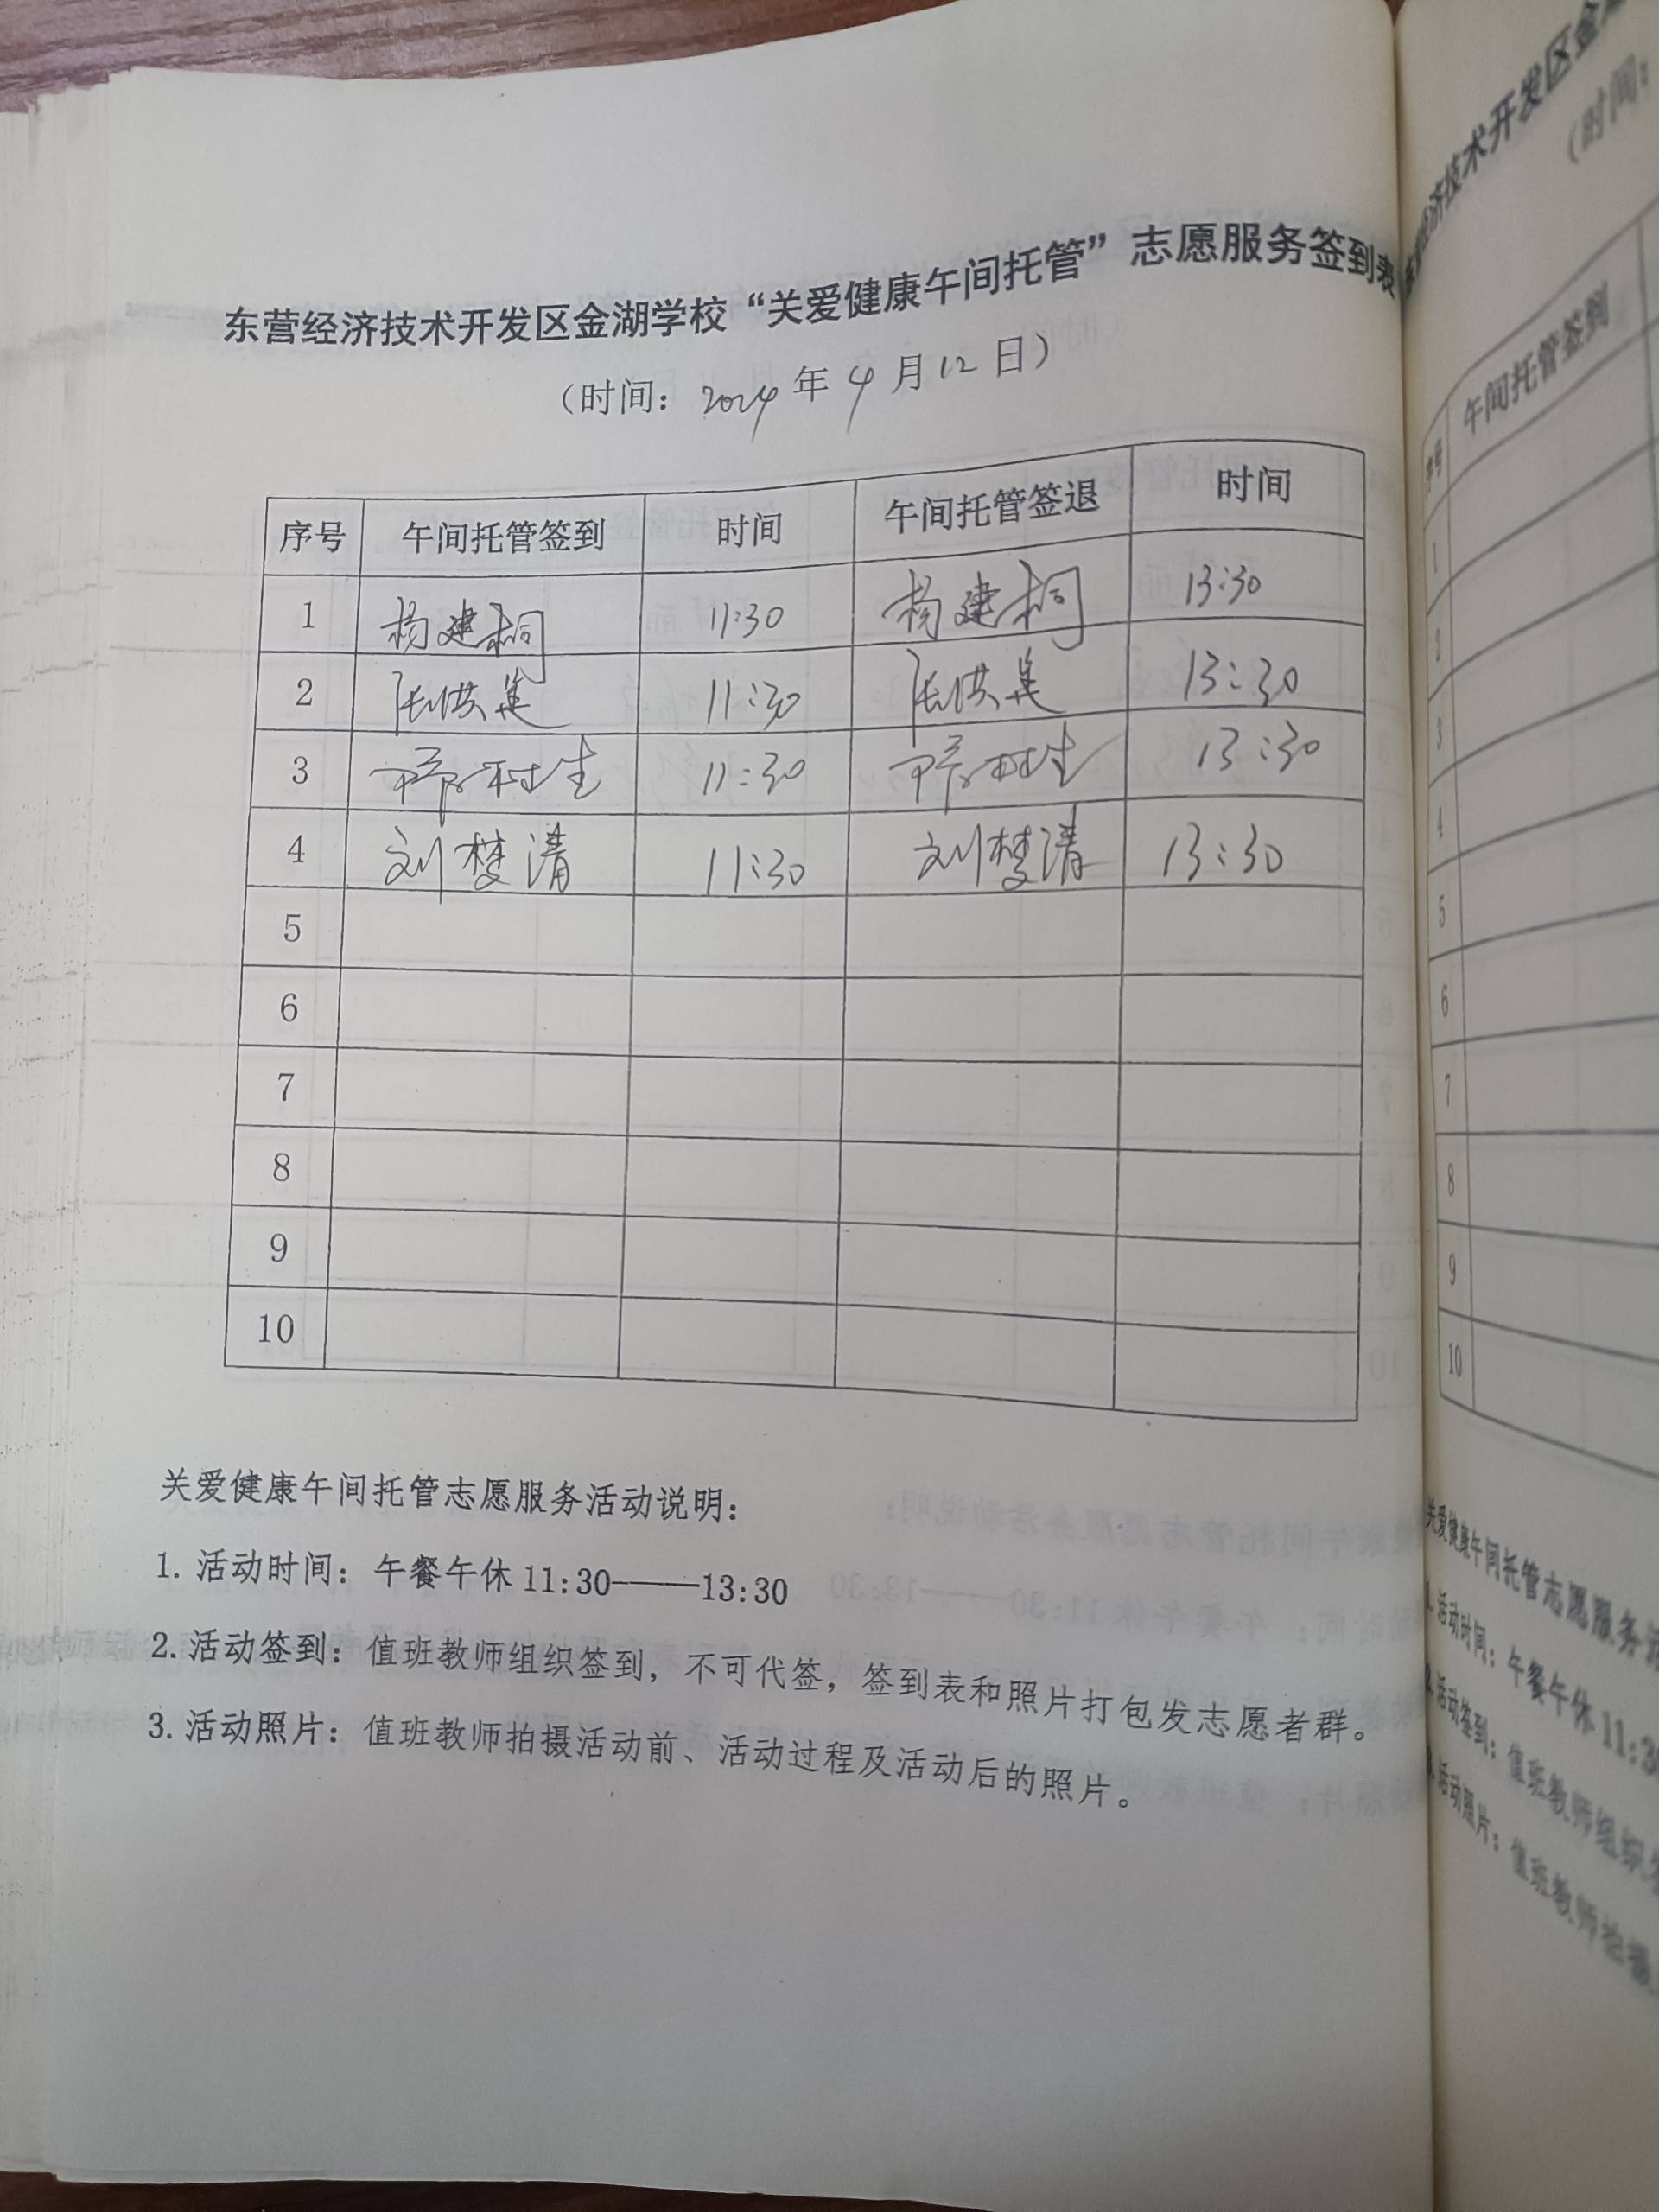 东营经济技术开发区金湖学校“关爱健康午间托管”志愿服务签到表
（时间：2024年4月12日）
序号 午间托管签到 时间 午间托管签退 时间
1 杨建桐 11:30 杨建桐 13:30
2 张洪 11:30 张洪 13:30
3 11:30 13:30
4 刘梦清 11:30 刘梦清 13:30
5
6
7
8
9
10
关爱健康午间托管志愿服务活动说明：
1. 活动时间：午餐午休 11:30——13:30
2. 活动签到：值班教师组织签到，不可代签，签到表和照片打包发志愿者群。
3. 活动照片：值班教师拍摄活动前、活动过程及活动后的照片。
经济技术开发区金
（时间：
序号 午间托管签到
1
2
3
4
5
6
7
8
9
10
关爱健康午间托管志愿服务活
1. 活动时间：午餐午休 11:30
2. 活动签到：值班教师组织签
3. 活动照片：值班教师拍摄